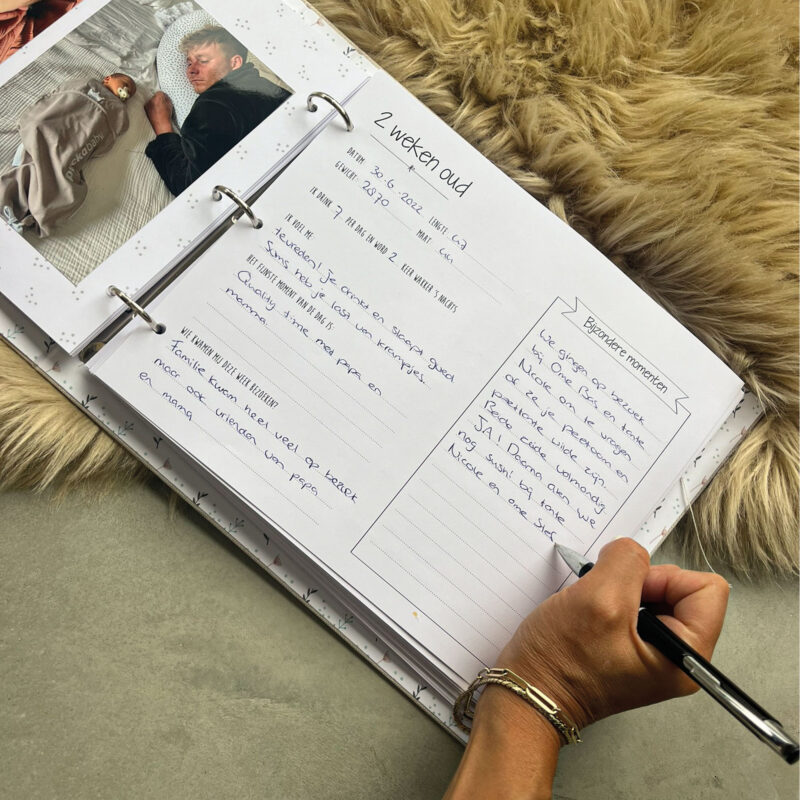 pick a baby
2 weken oud
DATUM: 30-6-2022 LENGTE 47
GEWICHT: 2870 MAAT 44
IK DRINK 7 PER DAG EN WORD 2 KEER WAKKER 'S NACHTS
IK VOEL ME
tevreden! Je drinkt en slaapt goed
Soms heb je last van krampjes.
HET FIJNSTE MOMENT VAN DE DAG IS:
Quality time met papa en
mamma.
WIE KWAMEN MIJ DEZE WEEK BEZOEKEN?
Familie kwam heel veel op bezoek
maar ook vrienden van papa
en mama
Bijzondere momenten
We gingen op bezoek
bij Ome Bas en tante
Nicole om te vragen
of ze je peetoom en
peettante wilde zijn.
Beide zeide volmondig
JA! Daarna aten we
nog sushi bij tante
Nicole en ome Stef